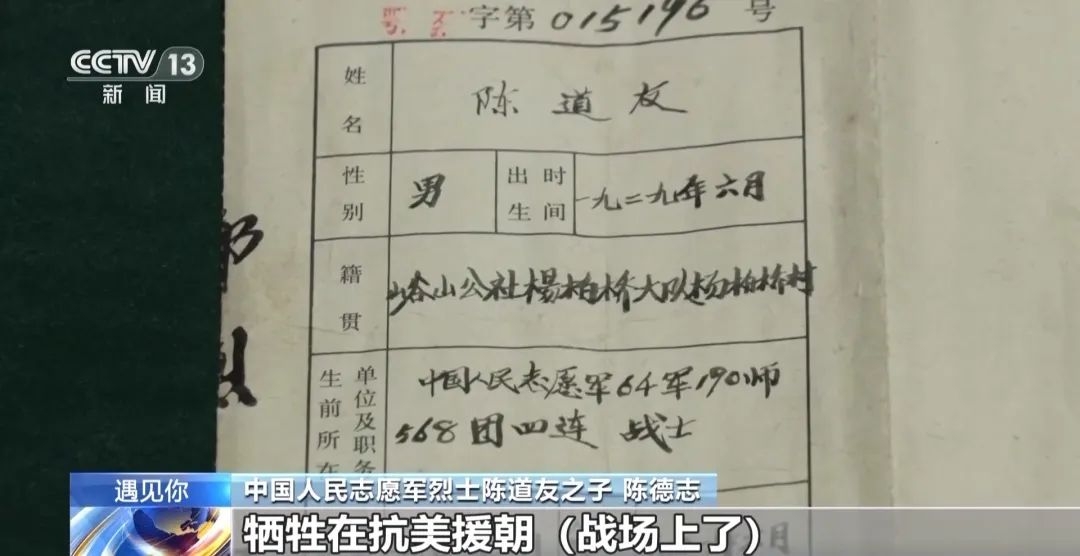 CCTV 13
新闻
字第015196号
姓名
陈道友
性别
男
出生时间
一九二九年六月
籍贯
峪山公社杨柏桥大队杨柏桥村
生前所在单位及职务
中国人民志愿军64军190师
568团四连 战士
遇见你
中国人民志愿军烈士陈道友之子 陈德志
牺牲在抗美援朝（战场上了）
月